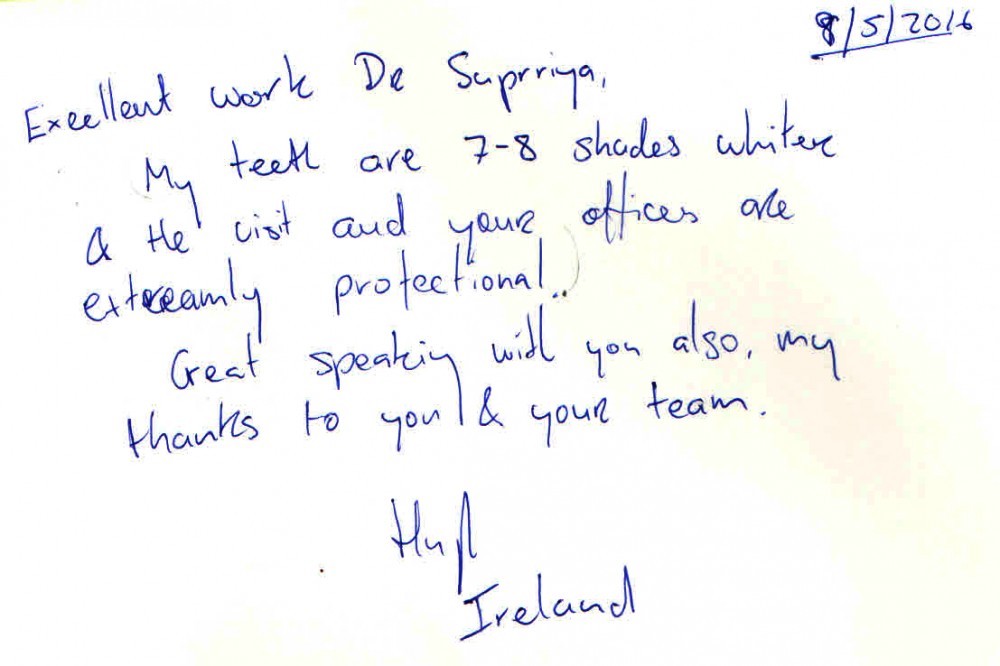 8/5/2016
Excellent work DR Suprriya,
My teeth are 7-8 shades whiter
& the visit and your offices are
extreamly profectional..
Great speaking with you also, my
thanks to you & your team.
Ireland